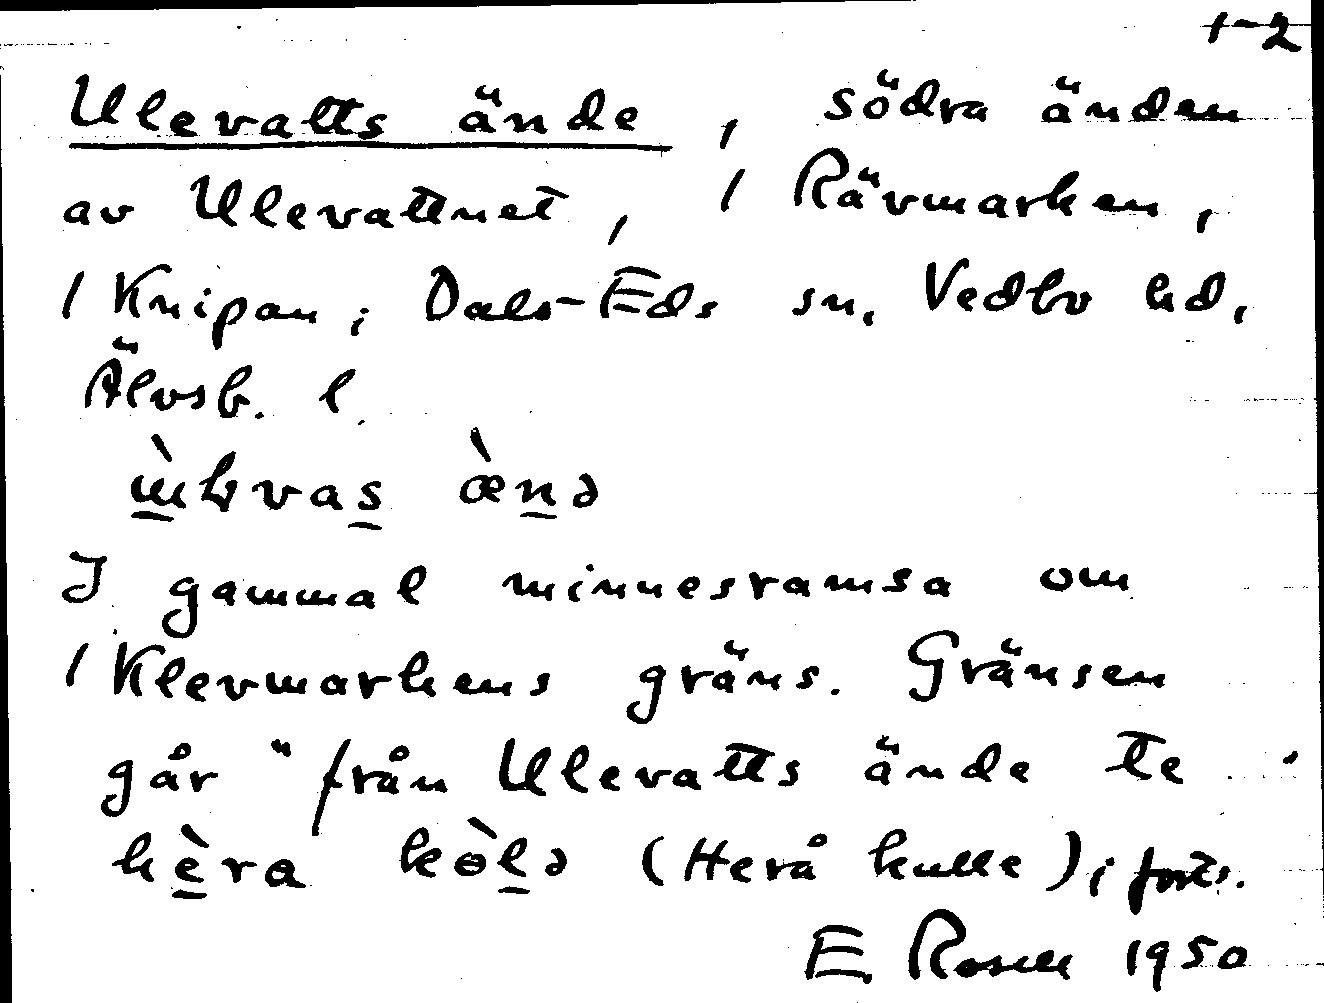 1-2
Ulevatts ände, södra änden
av Ulevattnet, / Rävmarken,
/ Knipan, Dals-Eds sn, Vedbo hd,
Älvsb. l.
ɯ̀ḷvas æ̀nə
I gammal minnesramsa om
/ Klevmarkens gräns. Gränsen
går "från Ulevatts ände te
hèra kòlə (Herå kulle); forts.
E Rosell 1950